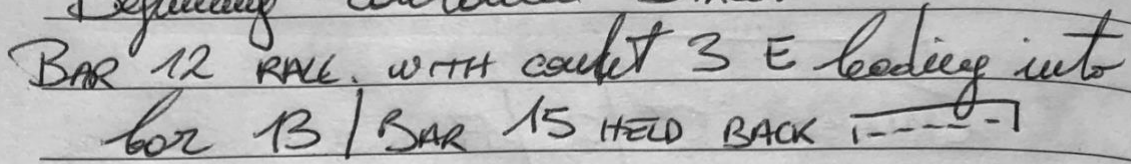 BAR 12 RALL. WITH couplet 3 E leading into
bar 13 / BAR 15 HELD BACK